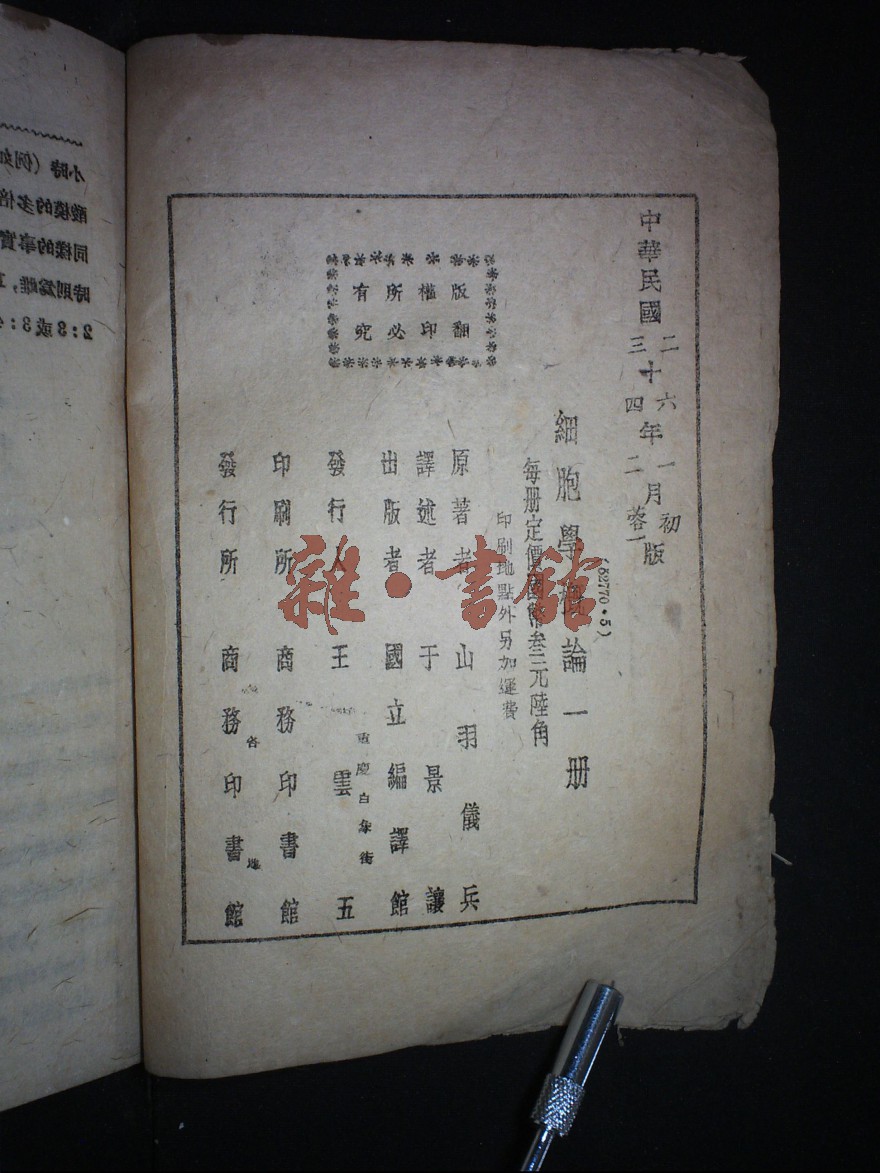 中華民國二十六年一月初版
三十四年二月蓉一版
(82770·5)
細胞學概論一册
每册定價國幣叁元陸角
印刷地點外另加運費
版權所有
翻印必究
原著者 山羽儀兵
譯述者 于景讓
出版者 國立編譯館
重慶白象街
發行人 王雲五
印刷所 商務印書館
各地
發行所 商務印書館
雜·書館
小時（例如
酸模的多倍
同樣的事實
時則爲雌，